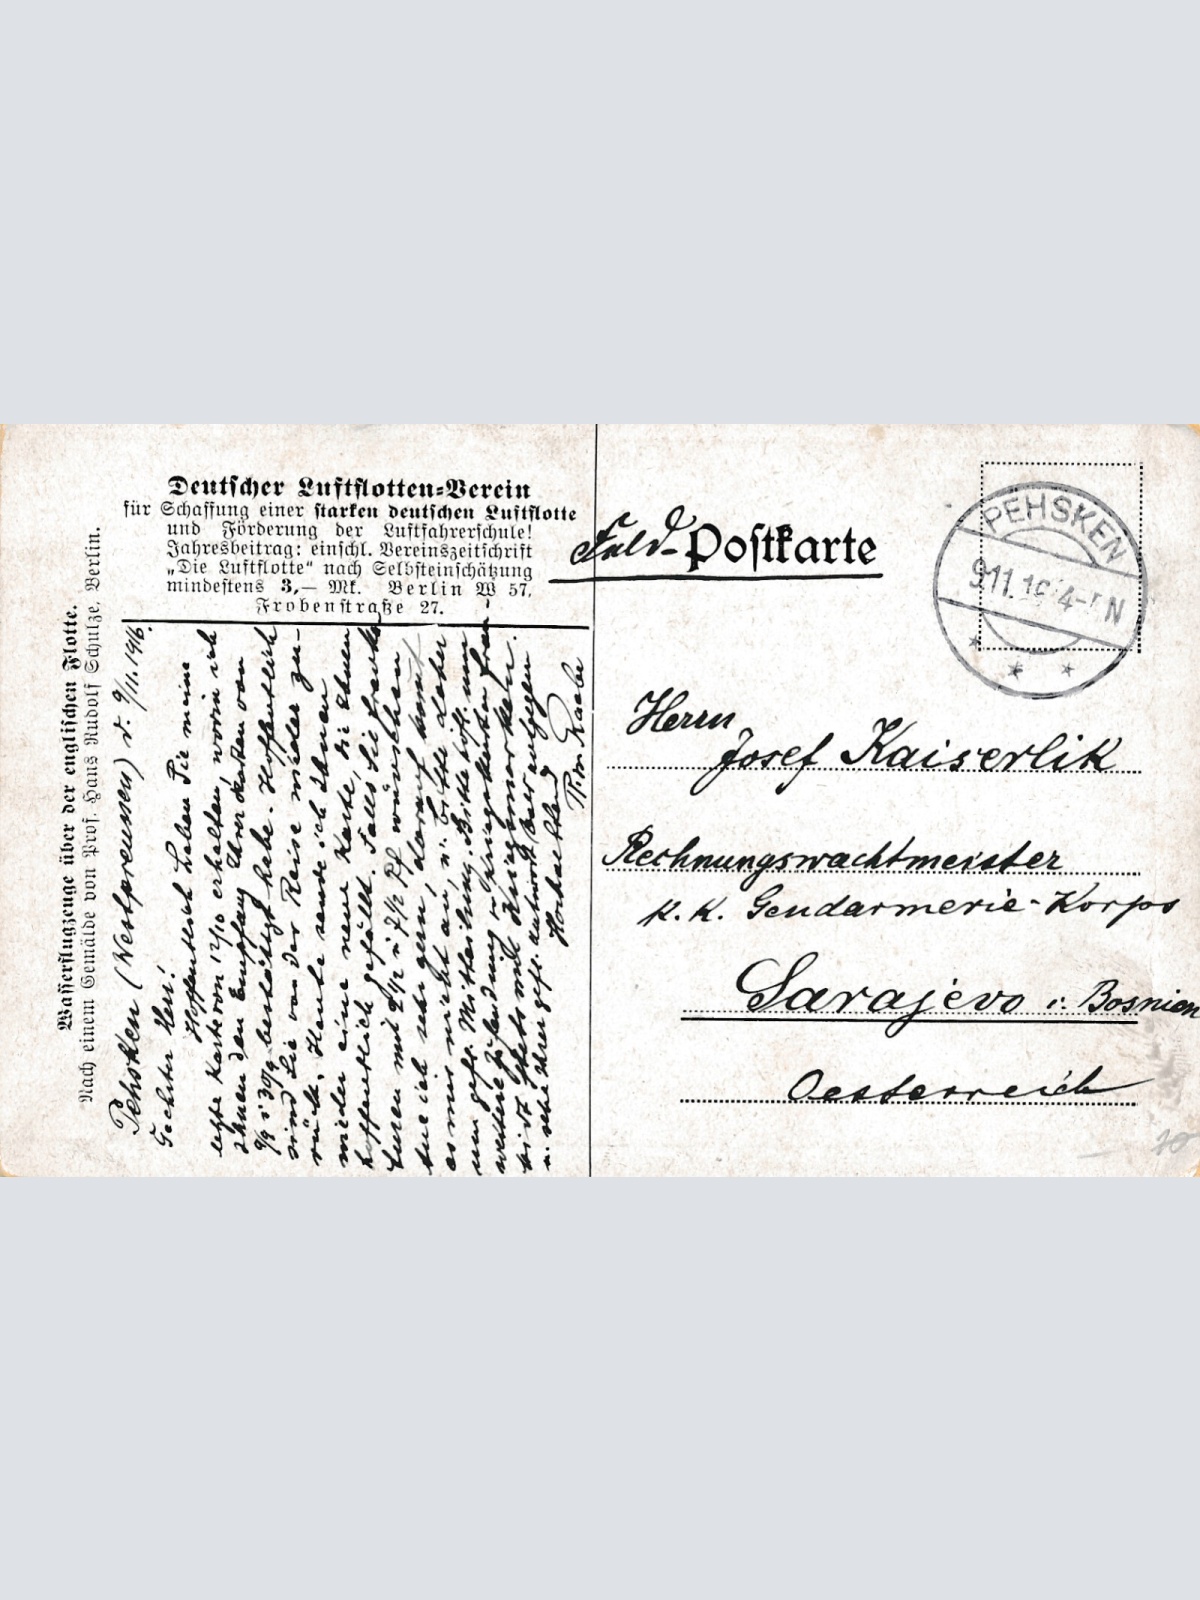 Wasserflugzeuge über der englischen Flotte.
Nach einem Gemälde von Prof. Hans Rudolf Schulze, Berlin.
Deutscher Luftflotten-Verein
für Schaffung einer starken deutschen Luftflotte
und Förderung der Luftfahrerschule!
Jahresbeitrag: einschl. Vereinszeitschrift
„Die Luftflotte“ nach Selbsteinschätzung
mindestens 3,— Mk. Berlin W 57,
Frobenstraße 27.
Pehsken (Westpreussen) d. 9/11.1916.
Geehrter Herr!
Hoffentlich haben Sie meine
letzte Karte von 12/10 erhalten, worin ich
Ihnen den Empfang Ihrer Karten von
9/9 i 30/9 bestätigt habe. Hoffentlich
sind Sie von der Reise wieder zu-
rück. Heute sende ich Ihnen
wieder eine neue Karte, die Ihnen
hoffentlich gefällt. Falls Sie
mit 2½ i 7½ Pf wünschen
tue ich sehr gern, darauf kommt
es mir nicht an, u. bitte daher
um gefl. Mitteilung. Bitte höfl. um
weitere Zusendung
mit
u. sehe Ihrer gefl. Antwort entgegen
Hochachtend
Feld-Postkarte
PEHSKEN
9.11.16 4-5 N
Herrn
Josef Kaiserlik
Rechnungswachtmeister
K. K. Gendarmerie-Korps
Sarajevo i. Bosnien
Oesterreich